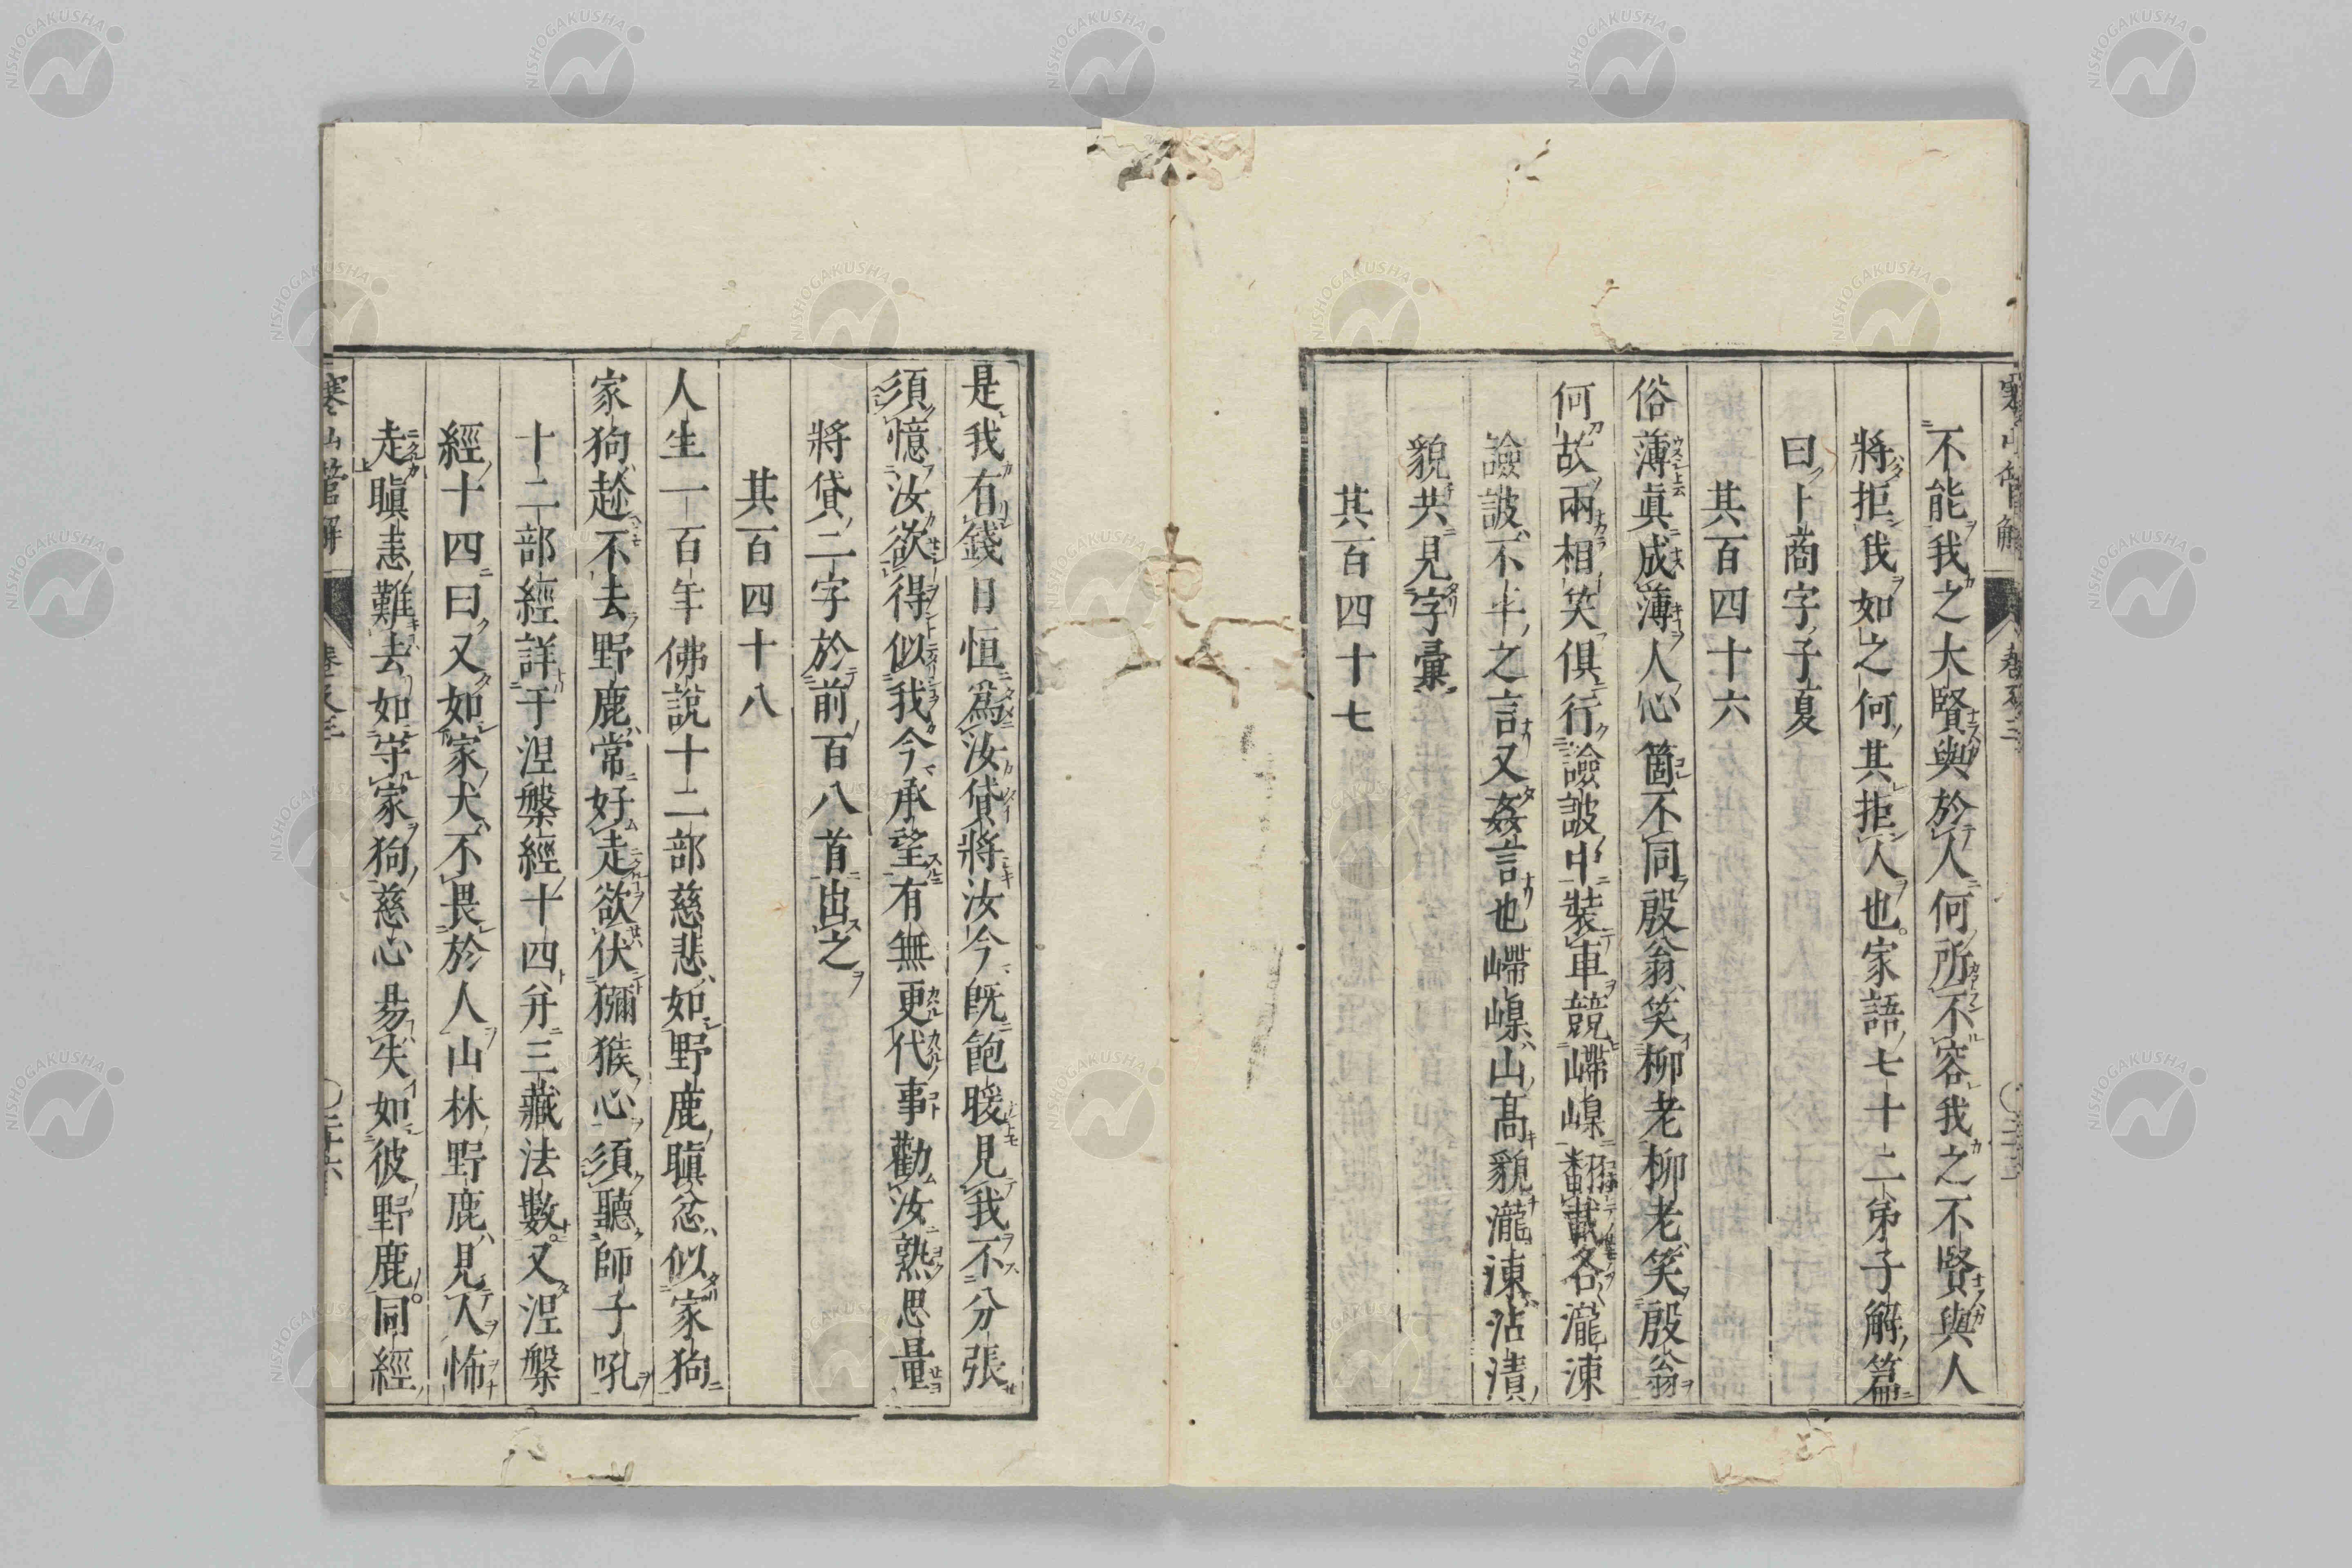 不能我之大賢與於人何所不容我之不賢與人
將拒我如之何其拒人也家語七十二弟子解篇
曰卜商字子夏
其百四十六
俗薄眞成薄人心箇不同殷翁笑柳老柳老笑殷翁
何故兩相笑俱行譣詖中裝車競嵽嵲翻載各瀧涷
譣詖不平之言又姦言也嵽嵲山高貌瀧涷沾漬
貌共見字彙
其百四十七
是我有錢日恒爲汝貸將汝今旣飽暖見我不分張
須憶汝欲得似我今承望有無更代事勸汝熟思量
將貸二字於前百八首出之
其百四十八
人生一百年佛說十二部慈悲如野鹿瞋忿似家狗
家狗趁不去野鹿常好走欲伏獼猴心須聽師子吼
十二部經詳于涅槃經十四并三藏法數又涅槃
經十四曰又如家犬不畏於人山林野鹿見人怖
走瞋恚難去如守家狗慈心易失如彼野鹿同經
寒山管解
NISHOGAKUSHA